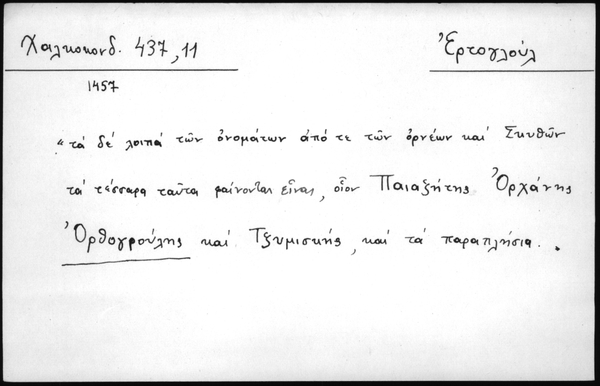 Χαλκοκονδ. 437,11
Ἐρτογλούλ
1457
"τὰ δέ λοιπά τῶν ὀνομάτων ἀπό τε τῶν ὀρνέων καί Σκυθῶν
τά τέσσαρα ταῦτα φαίνονται εἶναι, οἷον Παιαζήτης Ὀρχάνης
Ὀρθογρούλης καί Τζυμισκής, καί τά παραπλήσια.